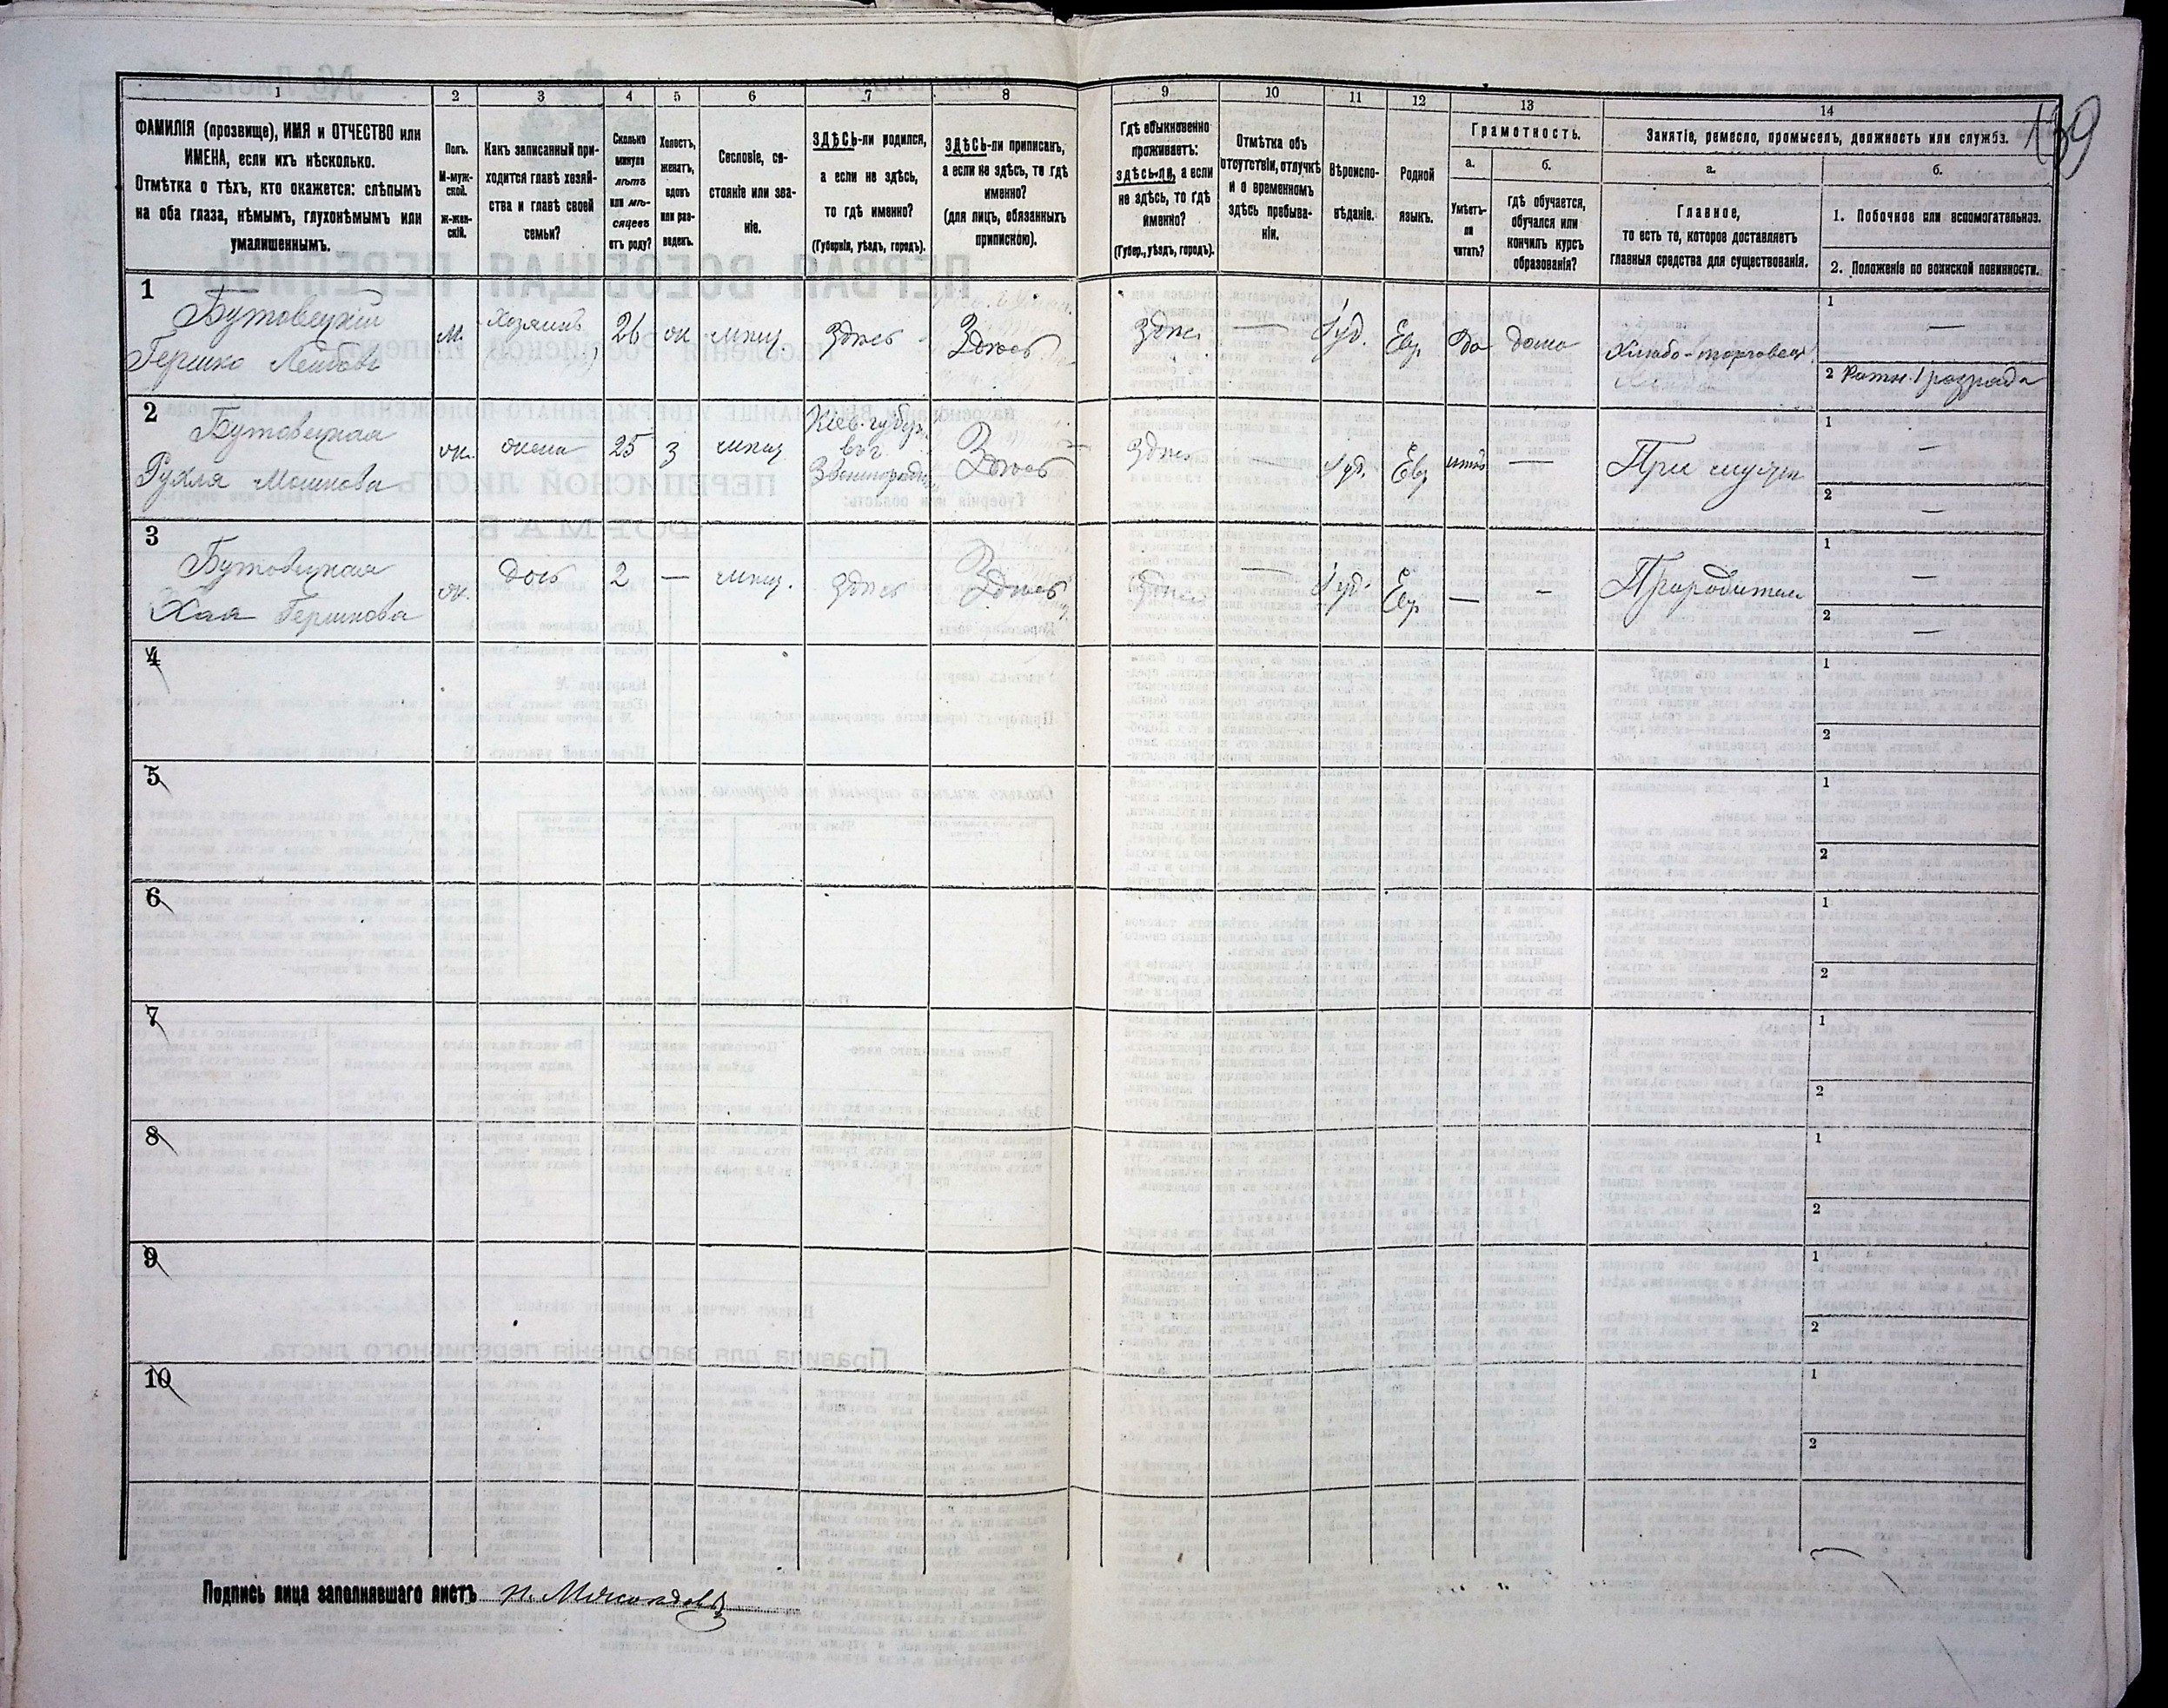 139
1 2 3 4 5 6 7 8 9 10 11 12 13 14
ФАМИЛІЯ (прозвище), ИМЯ и ОТЧЕСТВО или
ИМЕНА, если ихъ нѣсколько.
Отмѣтка о тѣхъ, кто окажется: слѣпымъ
на оба глаза, нѣмымъ, глухонѣмымъ или
умалишеннымъ.
Полъ.
М-муж-
ской.
ж-жен-
скій.
Какъ записанный при-
ходится главѣ хозяй-
ства и главѣ своей
семьи?
Сколько
минуло
лѣтъ
или мѣ-
сяцевъ
отъ роду?
Холостъ,
женатъ,
вдовъ
или раз-
веденъ.
Сословіе, со-
стояніе или зва-
ніе.
ЗДѢСЬ-ли родился,
а если не здѣсь,
то гдѣ именно?
(Губернія, уѣздъ, городъ).
ЗДѢСЬ-ли приписанъ,
а если не здѣсь, то гдѣ
именно?
(для лицъ, обязанныхъ
припискою).
Гдѣ обыкновенно
проживаетъ:
здѣсь-ли, а если
не здѣсь, то гдѣ
именно?
(Губер., уѣздъ, городъ).
Отмѣтка объ
отсутствіи, отлучкѣ
и о временномъ
здѣсь пребыва-
ніи.
Вѣроиспо-
вѣданіе.
Родной
языкъ.
Грамотность.
а.
Умѣетъ-
ли
читать?
б.
гдѣ обучается,
обучался или
кончилъ курсъ
образованія?
Занятіе, ремесло, промыселъ, должность или служба.
а.
Главное,
то есть то, которое доставляетъ
главныя средства для существованія.
б.
1. Побочное или вспомогательное.
2. Положеніе по воинской повинности.
1
Бутовецкій
Гершко Лейбовъ
м.
Хозяинъ
26
ж
мѣщ.
Здѣсь
Здѣсь
Здѣсь
—
Іуд.
Евр.
Да
дома
Хлѣбо-торговецъ
1 —
2 Ратн. 1 разряда
2
Бутовецкая
Рухля Мошкова
ж.
жена
25
з
мѣщ
Кіев. губер.
въ г.
Здѣсь
Здѣсь
—
Іуд.
Евр
нѣтъ
—
При мужѣ
1 —
2 —
3
Бутовецкая
Хая Гершкова
ж.
дочь
2
—
мѣщ.
Здѣсь
Здѣсь
Здѣсь
—
Іуд.
Евр
—
-
При родител
1 —
2 —
4
1
2
5
1
2
6
1
2
7
1
2
8
1
2
9
1
2
10
1
2
Подпись лица заполнявшаго листъ